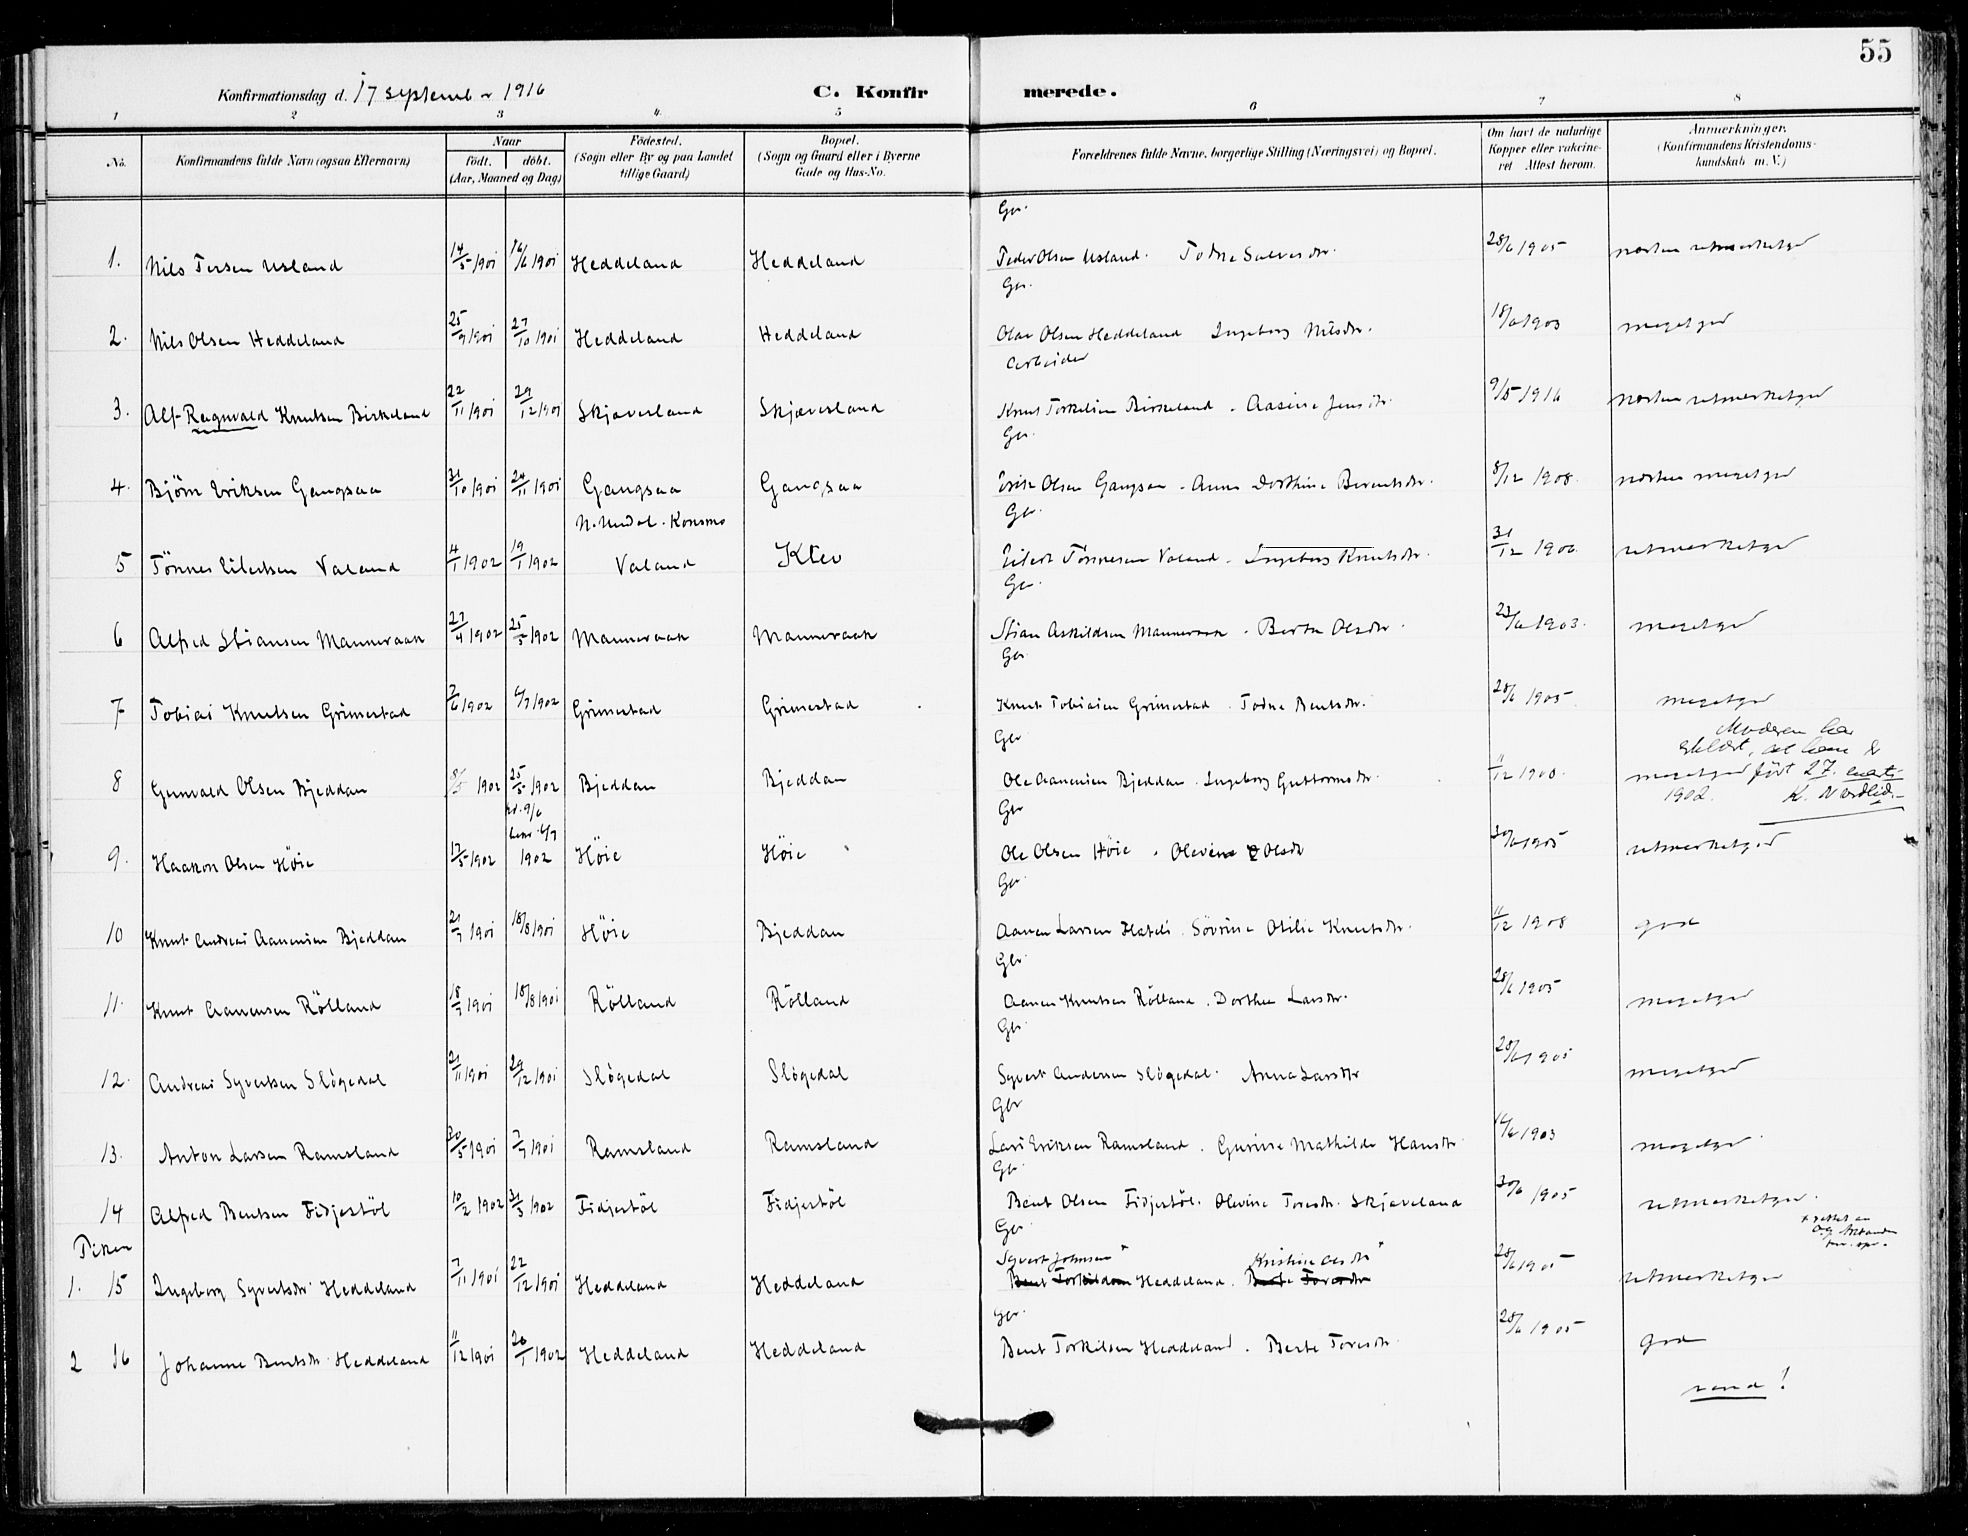 55
Konfirmationsdag d. 17 septemb 1916 C. Konfirmerede.
1 2 3 4. 5 6 7 8
No. Konfirmandens fulde Navn (ogsaa Efternavn) Naar født. døbt. (Aar, Maaned og Dag) Fødested. (Sogn eller By og paa Landet tillige Gaard) Bopæl. (Sogn og Gaard eller i Byerne Gade og Hus-No. Forældrenes fulde Navne, borgerlige Stilling (Næringsvei) og Bopæl. Om havt de naturlige Kopper eller vakcineret Attest herom. Anmærkninger. (Konfirmandens Kristendomskundskab m. V.)
Gbr.
1. Nils Persen Usland 14/5 1901 16/6 1901 Heddeland Heddeland Peder Olsen Usland. Todne Salvesdtr. 28/6 1905 næsten utmerketgod
Gbr.
2. Nils Olsen Heddeland 25/9 1901 27/10 1901 Heddeland Heddeland Olav Olsen Heddeland Ingeborg Nilsdtr. 18/6 1903 megetgod
Arbeider
3. Alf Ragnvald Knutsen Birkeland 22/11 1901 29/12 1901 Skjævesland Skjævesland Knut Torkilsen Birkeland. Aasine Jensdtr. 9/5 1916 næsten utmerketgod
Gbr.
4. Bjørn Eriksen Gangsaa 31/10 1901 24/11 1901 Gangsaa Gangsaa Erik Olsen Gangsaa. Anne Dorthine Berentsdtr. 8/12 1908. næsten megetgod
N. Undal. Konsmo Gbr.
5 Tönnes Eilertsen Valand 4/1 1902 19/1 1902 Valand Klev Eilert Tönnesen Valand. Ingeborg Knutsdtr. 31/12 1906 utmerketgod
Gbr.
6 Alfred Stiansen Manneraak 27/4 1902 25/5 1902 Manneraak Manneraak Stian Askildsen Manneraak. Berte Olsdtr. 23/6 1903. megetgod
Gbr.
7 Tobias Knutsen Grimestad 2/6 1902 6/7 1902 Grimestad Grimestad Knut Tobiasen Grimestad. Todne Bentsdtr. 28/6 1905 megetgod
Gbr
Moderen har
erklært, at han er
8 Gunvald Olsen Bjeddan 8/5 1902 25/5 1902 Bjeddan Bjeddan Ole Aanensen Bjeddan. Ingeborg Guttormsdtr. 11/12 1908. megetgod født 27. marts
1902. K. Nordlid.
Gbr
9. Haakon Olsen Höie 12/5 1902 1902 Höie Höie Ole Olsen Höie. Olevine Olsdtr 30/6 1905 utmerketgod
Gbr.
10 Knut Andreas Aanensen Bjeddan 21/7 1901 18/8 1901 Höie Bjeddan Aanen Larsen. Sövrine Otilie Knutsdtr. 11/12 1908 god
Gbr.
11. Knut Aanensen Rölland 18/7 1901 18/8 1901 Rölland Rölland Aanen Knutsen Rölland. Dorthea Larsdtr. 28/6 1905 megetgod
Gbr.
12. Andreas Syvertsen Slögedal 21/11 1901 29/12 1901 Slögedal Slögedal Syvert Andersen Slögedal. Anna Larsdtr 28/6 1905 megetgod
Gbr
13. Anton Larsen Ramsland 30/5 1901 7/7 1901 Ramsland Ramsland Lars Eriksen Ramsland. Gurine Mathilde Hansdtr 16/6 1903 megetgod
Gbr.
14 Alfred Bentsen Fidjestöl 10/2 1902 31/3 1902 Fidjestöl Fidjestöl Bent Olsen Fidjestöl. Olevine Toresdtr. Skjæveland 30/6 1905 utmerketgod.
Gbr
Piker
Syvert Johnsen x Kristine Olsdtr x
1. 15 Ingeborg Syvertsdtr Heddeland 7/11 1901 22/12 1901 Heddeland Heddeland Bent Torkildsen Heddeland. Berte Toresdtr 28/6 1905 utmerketgod
Gbr.
2 16 Johanne Bentsdtr. Heddeland 11/12 1901 26/1 1902 Heddeland Heddeland Bent Torkilsen Heddeland. Berte Toresdtr. 28/6 1905 god
vend!